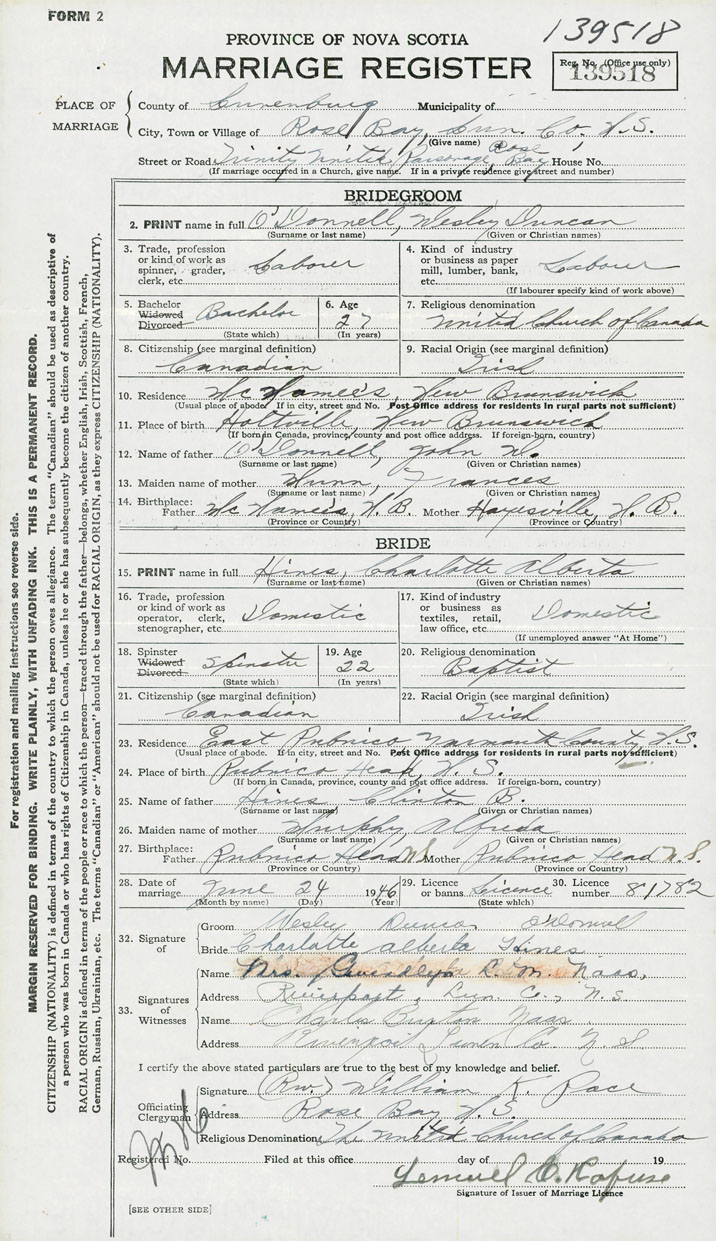 FORM 2
139518
PROVINCE OF NOVA SCOTIA
MARRIAGE REGISTER
Reg. No. (Office use only)
139518
PLACE OF MARRIAGE
County of Lunenburg Municipality of
City, Town or Village of Rose Bay, Lun. Co. N.S.
(Give name)
Street or Road Trinity United Parsonage, Rose Bay House No.
(If marriage occurred in a Church, give name. If in a private residence give street and number)
BRIDEGROOM
2. PRINT name in full O'Donnell, Wesley Duncan
(Surname or last name) (Given or Christian names)
3. Trade, profession or kind of work as spinner, grader, clerk, etc. Labourer
4. Kind of industry or business as paper mill, lumber, bank, etc. Labourer
(If labourer specify kind of work above)
5. Bachelor Widowed Divorced Bachelor
(State which)
6. Age 27
(In years)
7. Religious denomination United Church of Canada
8. Citizenship (see marginal definition) Canadian
9. Racial Origin (see marginal definition) Irish
10. Residence McNamee's, New Brunswick
(Usual place of abode. If in city, street and No. Post Office address for residents in rural parts not sufficient)
11. Place of birth Holtville, New Brunswick
(If born in Canada, province, county and post office address. If foreign-born, country)
12. Name of father O'Donnell, John
(Surname or last name) (Given or Christian names)
13. Maiden name of mother Frances
(Surname or last name) (Given or Christian names)
14. Birthplace: Father McNamee's, N.B. Mother Hayesville, N.B.
(Province or Country) (Province or Country)
BRIDE
15. PRINT name in full Hines, Charlotte Alberta
(Surname or last name) (Given or Christian names)
16. Trade, profession or kind of work as operator, clerk, stenographer, etc. Domestic
17. Kind of industry or business as textiles, retail, law office, etc. Domestic
(If unemployed answer "At Home")
18. Spinster Widowed Divorced Spinster
(State which)
19. Age 22
(In years)
20. Religious denomination Baptist
21. Citizenship (see marginal definition) Canadian
22. Racial Origin (see marginal definition) Irish
23. Residence East Pubnico Yarmouth County, N.S.
(Usual place of abode. If in city, street and No. Post Office address for residents in rural parts not sufficient)
24. Place of birth Pubnico Head, N.S.
(If born in Canada, province, county and post office address. If foreign-born, country)
25. Name of father Hines Clinton B.
(Surname or last name) (Given or Christian names)
26. Maiden name of mother Murphy Alfreda
(Surname or last name) (Given or Christian names)
27. Birthplace: Father Pubnico Head N.S. Mother Pubnico Head N.S.
(Province or Country) (Province or Country)
28. Date of marriage June 24 1946
(Month by name) (Day) (Year)
29. Licence or banns Licence
(State which)
30. Licence number 81782
32. Signature of
Groom Wesley Duncan O'Donnell
Bride Charlotte Alberta Hines
33. Signatures of Witnesses
Name Mrs. Gwendlyn R. M. Naas,
Address Riverport, Lun. Co., N.S.
Name Charles Burton Naas
Address Riverport Lunen Co. N.S.
I certify the above stated particulars are true to the best of my knowledge and belief.
Officiating Clergyman
Signature (Rev.) William K. Pace
Address Rose Bay N.S.
Religious Denomination The United Church of Canada
Registered No. Filed at this office day of 19
Lemuel
Signature of Issuer of Marriage Licence
[SEE OTHER SIDE]
For registration and mailing instructions see reverse side.
MARGIN RESERVED FOR BINDING. WRITE PLAINLY, WITH UNFADING INK. THIS IS A PERMANENT RECORD.
CITIZENSHIP (NATIONALITY) is defined in terms of the country to which the person owes allegiance. The term "Canadian" should be used as descriptive of
a person who was born in Canada or who has rights of Citizenship in Canada, unless he or she has subsequently become the citizen of another country.
RACIAL ORIGIN is defined in terms of the people or race to which the person—traced through the father—belongs, whether English, Irish, Scottish, French,
German, Russian, Ukrainian, etc. The terms "Canadian" or "American" should not be used for RACIAL ORIGIN, as they express CITIZENSHIP (NATIONALITY).